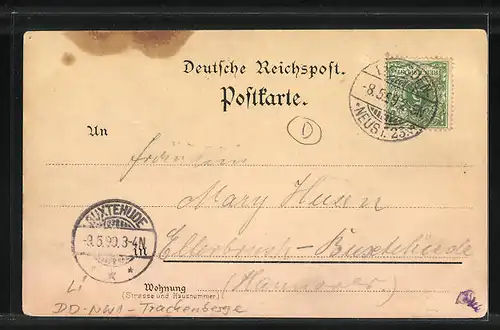 Deutsche Reichspost.
Postkarte.
D
-8.5.99.
*NEUST. 23
An
Fräulein
Mary
BUXTEHUDE
-9.5.99.3-4N
Ellerbruch-Buxtehude
Wohnung
(Strasse und Hausnummer)
(Hannover)
Li
DD-NW1-Trachenberge